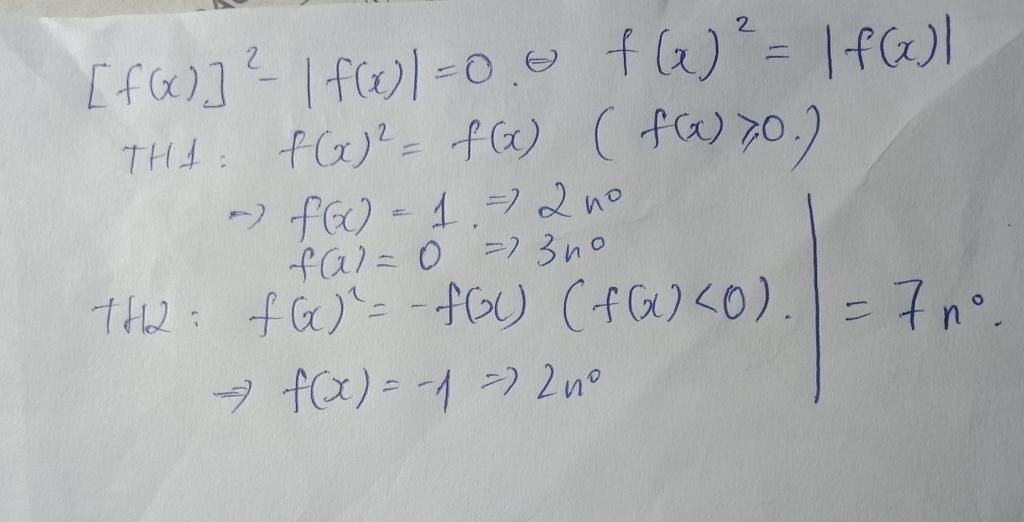 [f(x)]² - |f(x)| = 0. ⇔ f(x)² = |f(x)|
TH1: f(x)² = f(x) ( f(x) ≥ 0.)
=> f(x) = 1. => 2 n⁰
f(x) = 0 => 3 n⁰
TH2: f(x)² = -f(x) (f(x) < 0). = 7 n⁰.
=> f(x) = -1 => 2 n⁰